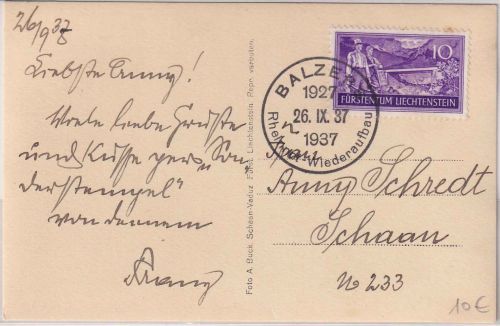 26/9 37
Liebste Anny!
Viele liebe Grüße
und Küsse per "Son
derstempel"
von deinem
Franz
Foto A. Buck, Schaan-Vaduz, Fürst. Liechtenstein. Repr. verboten.
10
FÜRSTENTUM LIECHTENSTEIN
BALZERS
1927
26. IX. 37
1937
Rheinnot-Wiederaufbau
Anny Schredt
Schaan
No 233
10€